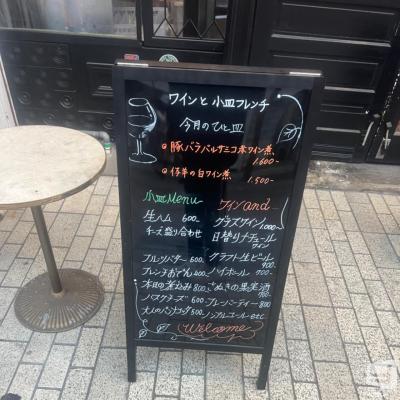 ワインと小皿フレンチ
今月のひと皿
豚バラバルサミコ赤ワイン煮
1.600-
仔羊の白ワイン煮
1.500-
小皿Menu
生ハム 600
チーズ盛り合わせ
フルーツバター 600-
フレンチおでん 400
本日の煮込み 800
バスクチーズ 600
大人のパンナコッタ 500
ワインand
グラスワイン 1.000~
日替りナチュール
ワイン
クラフト生ビール
900
ハイボール 700-
さぬきの果実酒
700-
フレーバーティー 800
ノンアルコール etc
Welcome